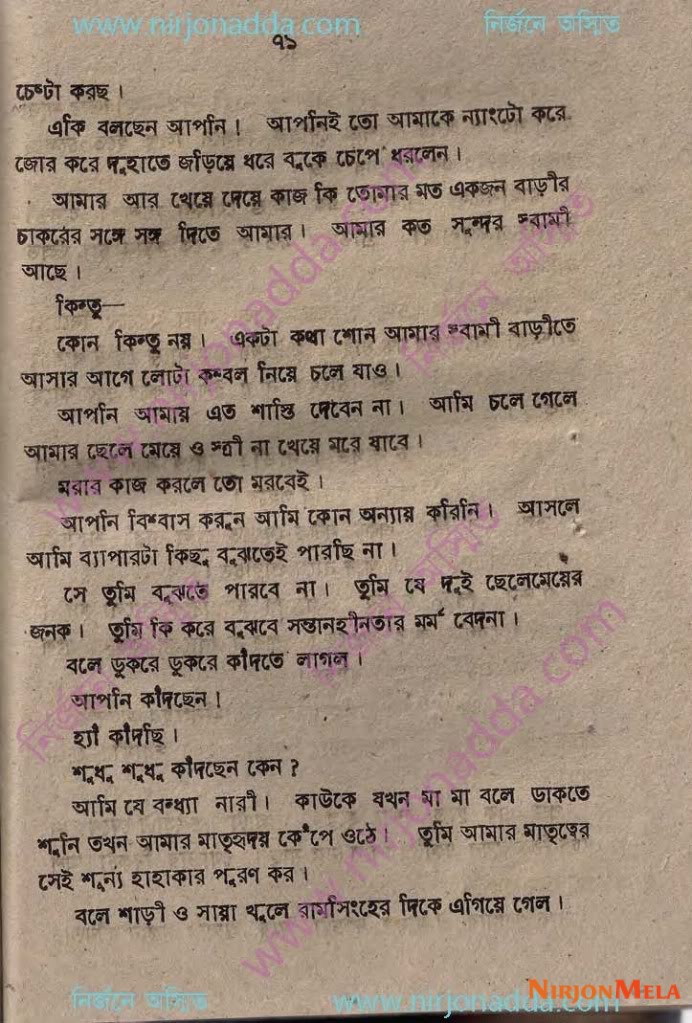 www.nirjonadda.com নির্জনে অস্মিত
৭১
চেষ্টা করছ।
একি বলছেন আপনি! আপনিই তো আমাকে ন্যাংটো করে
জোর করে দুহাতে জড়িয়ে ধরে বুকে চেপে ধরলেন।
আমার আর খেয়ে দেয়ে কাজ কি তোমার মত একজন বাড়ীর
চাকরের সঙ্গে সঙ্গ দিতে আমার। আমার কত সুন্দর স্বামী
আছে।
কিন্তু—
কোন কিন্তু নয়। একটা কথা শোন আমার স্বামী বাড়ীতে
আসার আগে লোটা কম্বল নিয়ে চলে যাও।
আপনি আমায় এত শাস্তি দেবেন না। আমি চলে গেলে
আমার ছেলে মেয়ে ও স্ত্রী না খেয়ে মরে যাবে।
মরার কাজ করলে তো মরবেই।
আপনি বিশ্বাস করুন আমি কোন অন্যায় করিনি। আসলে
আমি ব্যাপারটা কিছু বুঝতেই পারছি না।
সে তুমি বুঝতে পারবে না। তুমি যে দুই ছেলেমেয়ের
জনক। তুমি কি করে বুঝবে সন্তানহীনতার মর্ম বেদনা।
বলে ডুকরে ডুকরে কাঁদতে লাগল।
আপনি কাঁদছেন!
হ্যাঁ কাঁদছি।
শুধু শুধু কাঁদছেন কেন?
আমি যে বন্ধ্যা নারী। কাউকে যখন মা মা বলে ডাকতে
শুনি তখন আমার মাতৃহৃদয় কেঁপে ওঠে। তুমি আমার মাতৃত্বের
সেই শূন্য হাহাকার পূরণ কর।
বলে শাড়ী ও সায়া খুলে রামসিংহের দিকে এগিয়ে গেল।
নির্জনে অস্মিত www.nirjonadda.com
NIRJONMELA